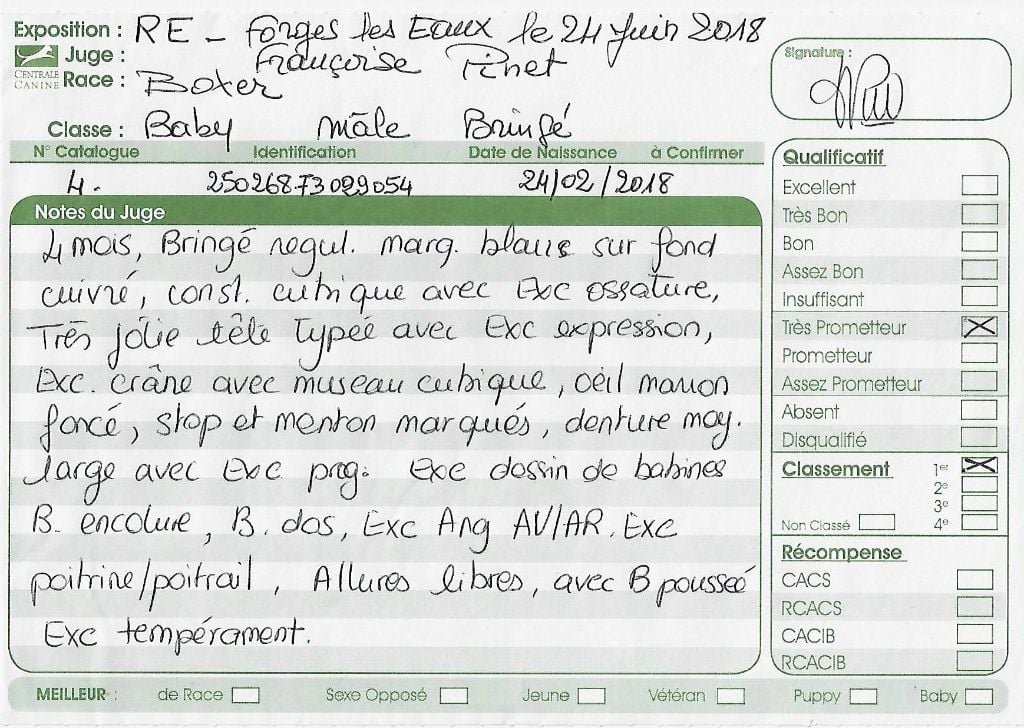 Exposition : RE - Forges les Eaux le 24 Juin 2018
Juge : Françoise Pinet
CENTRALE CANINE
Race : Boxer
Signature :
Classe : Baby mâle Bringé
N° Catalogue Identification Date de Naissance à Confirmer
4. 25026873029054 24/02/2018
Notes du Juge
4 mois, Bringé regul. marq. blancs sur fond
cuivré, const. cubique avec Exc ossature,
Très jolie tête typée avec Exc expression,
Exc. crâne avec museau cubique, oeil marron
foncé, stop et menton marqués, denture moy.
large avec Exc prog. Exc dessin de babines
B. encolure, B. dos, Exc Ang AV/AR. Exc
poitrine/poitrail, Allures libres, avec B pousseé
Exc tempérament.
Qualificatif
Excellent
Très Bon
Bon
Assez Bon
Insuffisant
Très Prometteur X
Prometteur
Assez Prometteur
Absent
Disqualifié
Classement 1er X
2e
3e
Non Classé 4e
Récompense
CACS
RCACS
CACIB
RCACIB
MEILLEUR : de Race Sexe Opposé Jeune Vétéran Puppy Baby